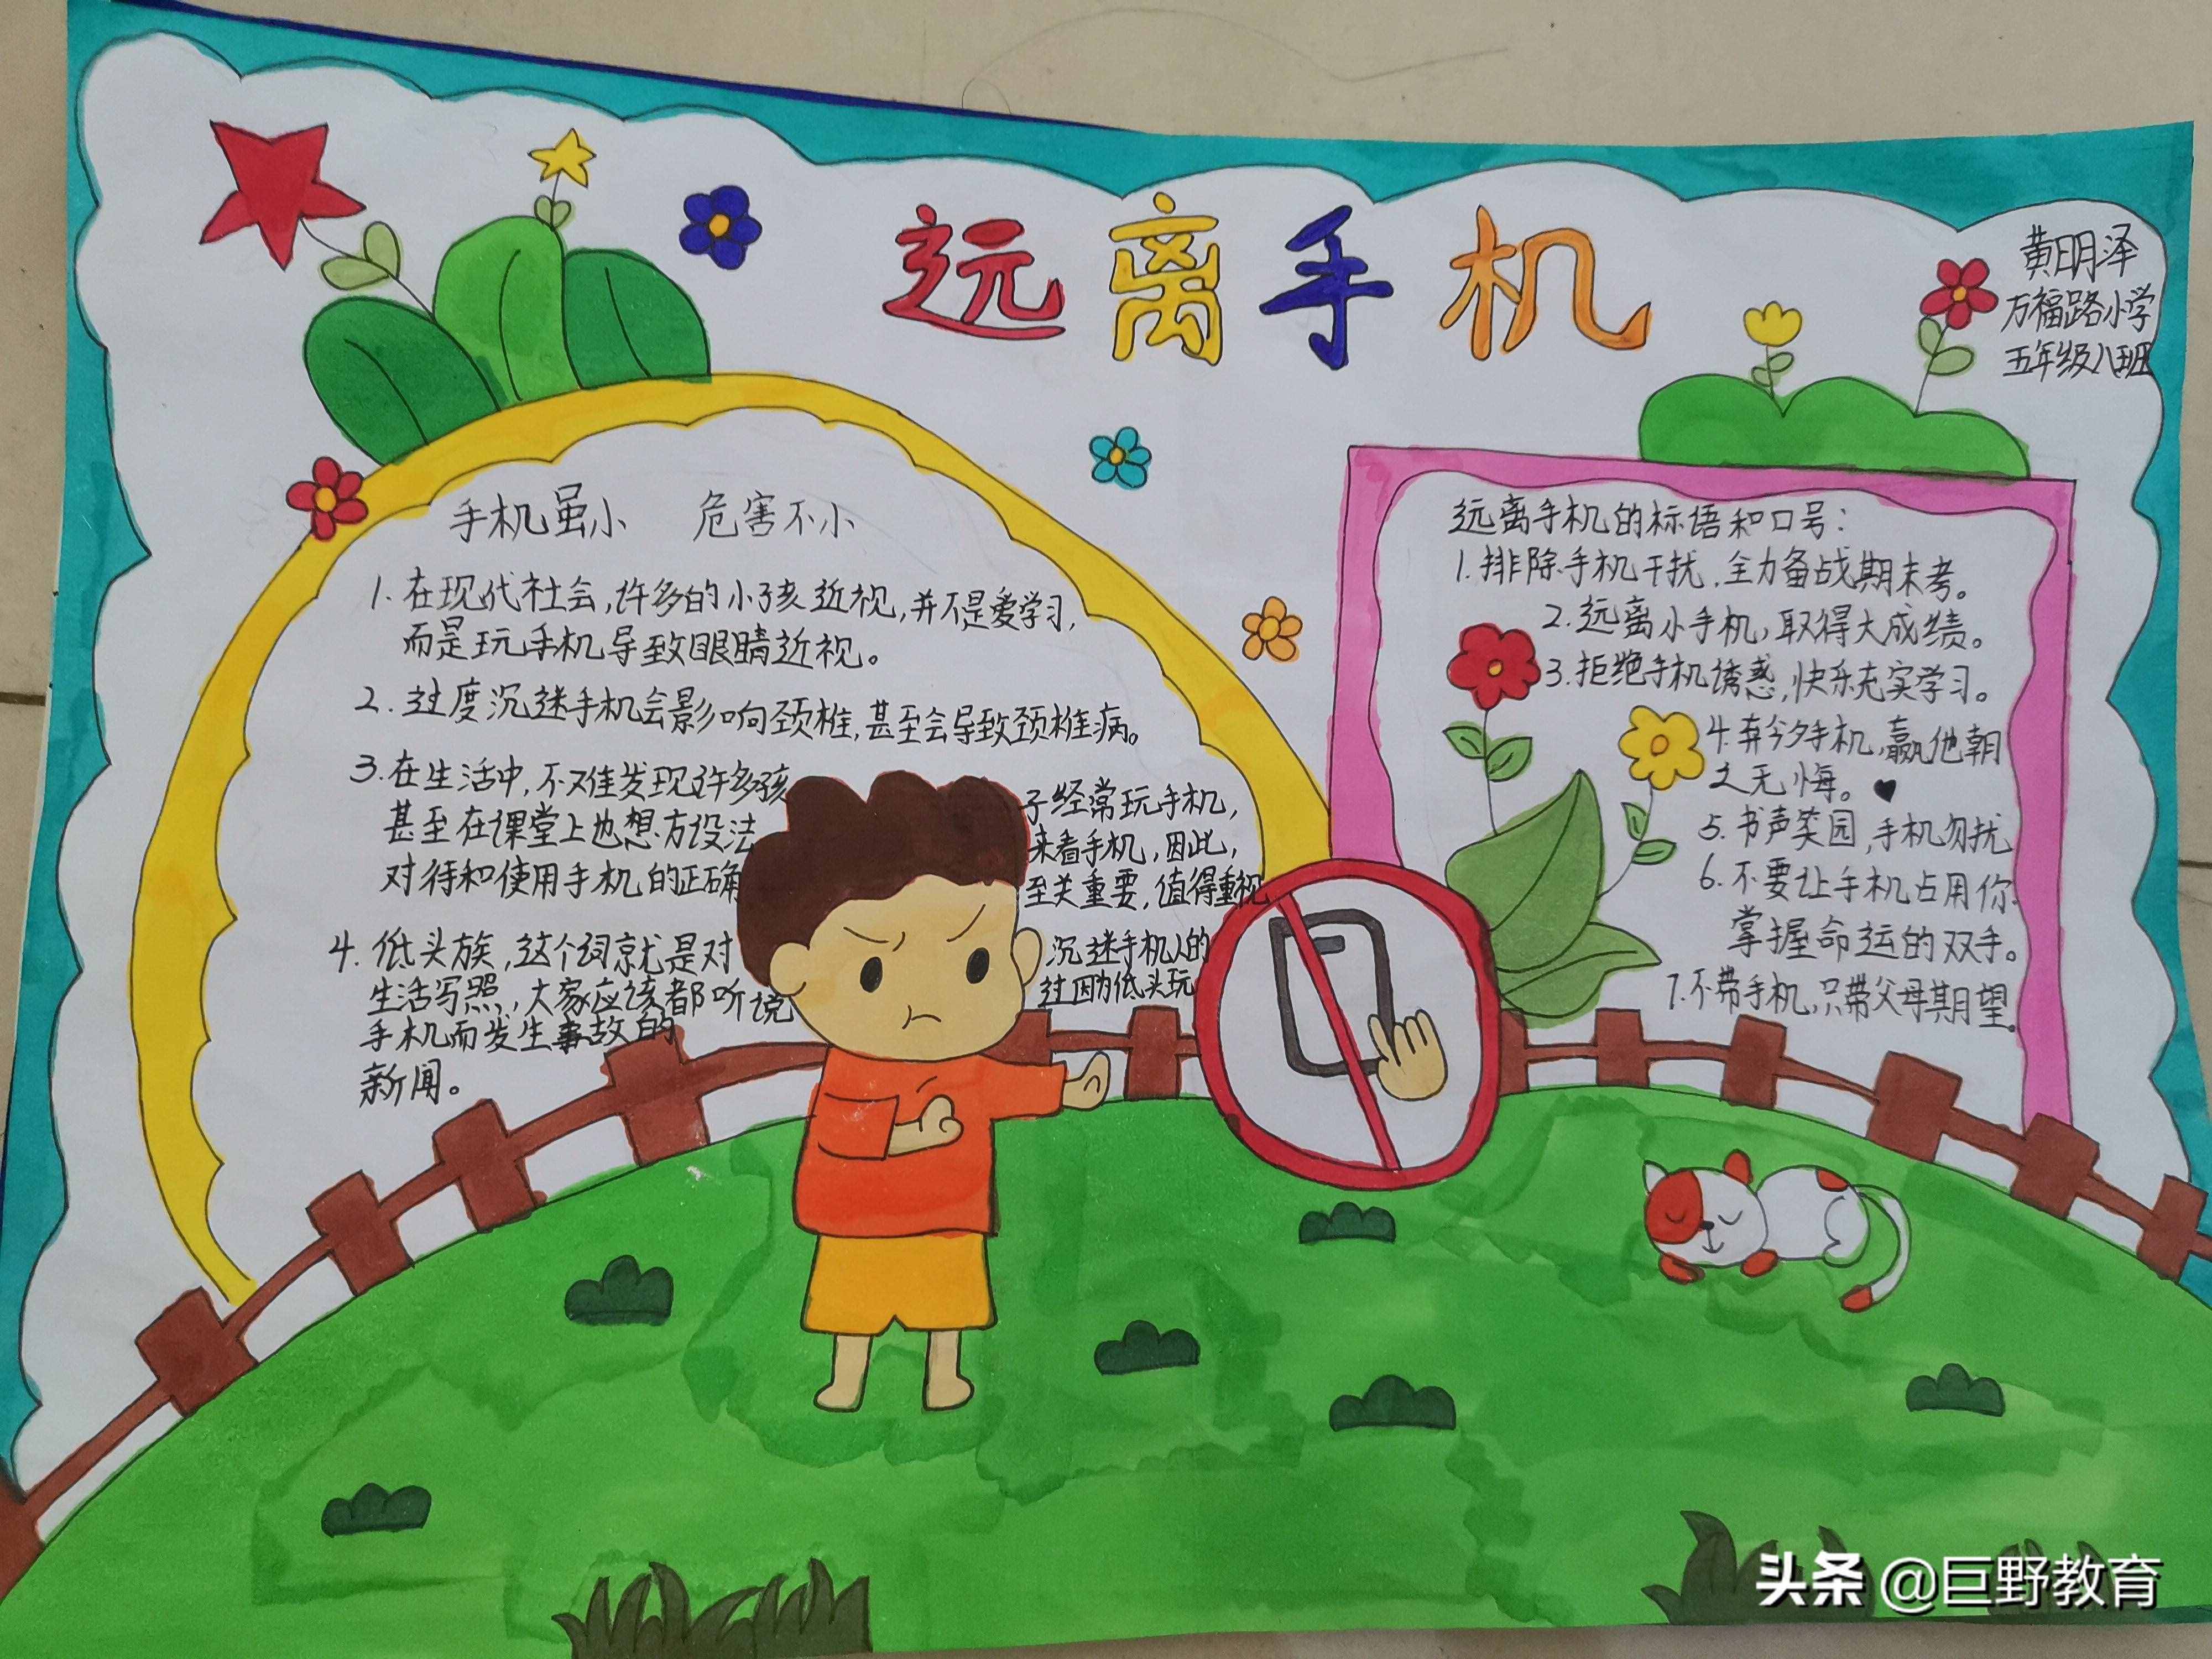 远离手机
黄明泽
万福路小学
五年级八班
手机虽小 危害不小
1. 在现代社会,许多的小孩近视,并不是爱学习,
而是玩手机导致眼睛近视。
2. 过度沉迷手机会影响颈椎,甚至会导致颈椎病。
3. 在生活中,不难发现许多孩子经常玩手机,
甚至在课堂上也想方设法来看手机,因此,
对待和使用手机的正确至关重要,值得重视
4. 低头族,这个词就是对沉迷手机人的
生活写照,大家应该都听说过因为低头玩
手机而发生事故的
新闻。
远离手机的标语和口号:
1. 排除手机干扰,全力备战期末考。
2. 远离小手机,取得大成绩。
3. 拒绝手机诱惑,快乐充实学习。
4. 弃今夕手机,赢他朝
之无悔。
5. 书声笑园,手机勿扰
6. 不要让手机占用你
掌握命运的双手。
7. 不带手机,只带父母期望。
头条 @巨野教育